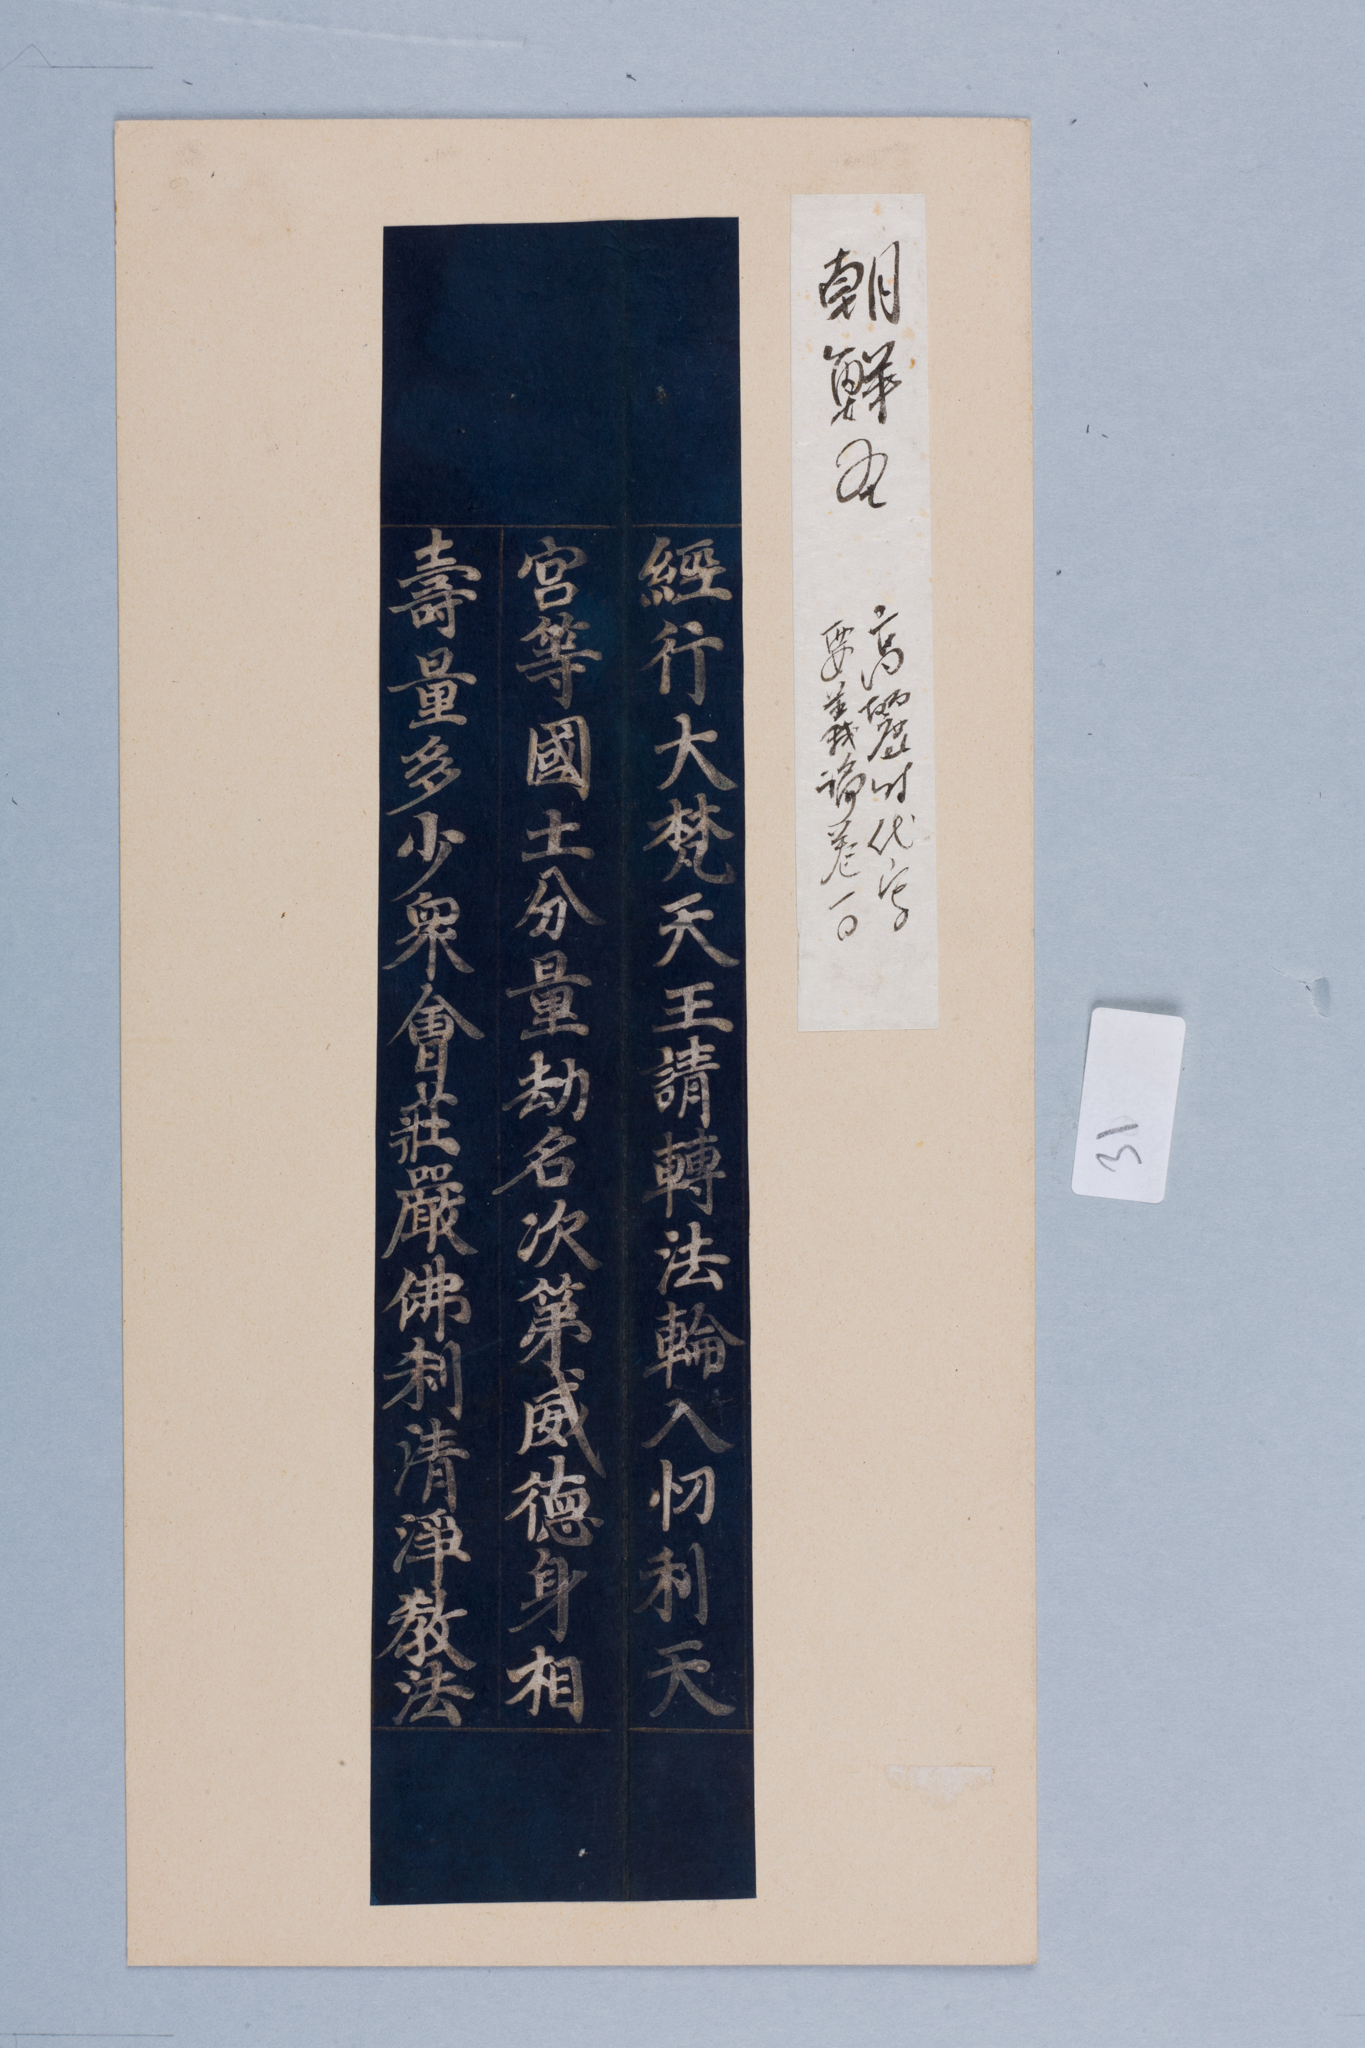 朝鮮
高麗时代写
要義論巻一
經行大梵天王請轉法輪入忉利天
宮等國土分量劫名次第威德身相
壽量多少衆會莊嚴佛刹清淨教法
31